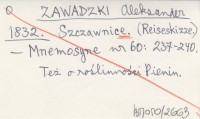 ZAWADZKI Aleksander
1832. Szczawnice. (Reiseskizze)
— Mnemosyne nr 60: 237-240.
Też o roślinności Pienin.